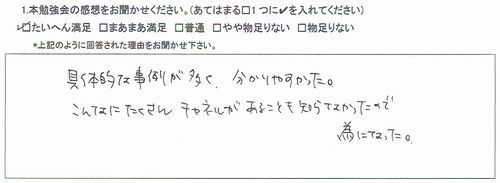 1.本勉強会の感想をお聞かせください。(あてはまる□1つに✔を入れてください)
☑たいへん満足 □まあまあ満足 □普通 □やや物足りない □物足りない
*上記のように回答された理由をお聞かせ下さい。
具体的な事例が多く、分かりやすかった。
こんなにたくさんチャネルがあることも知らなかったので
為になった。